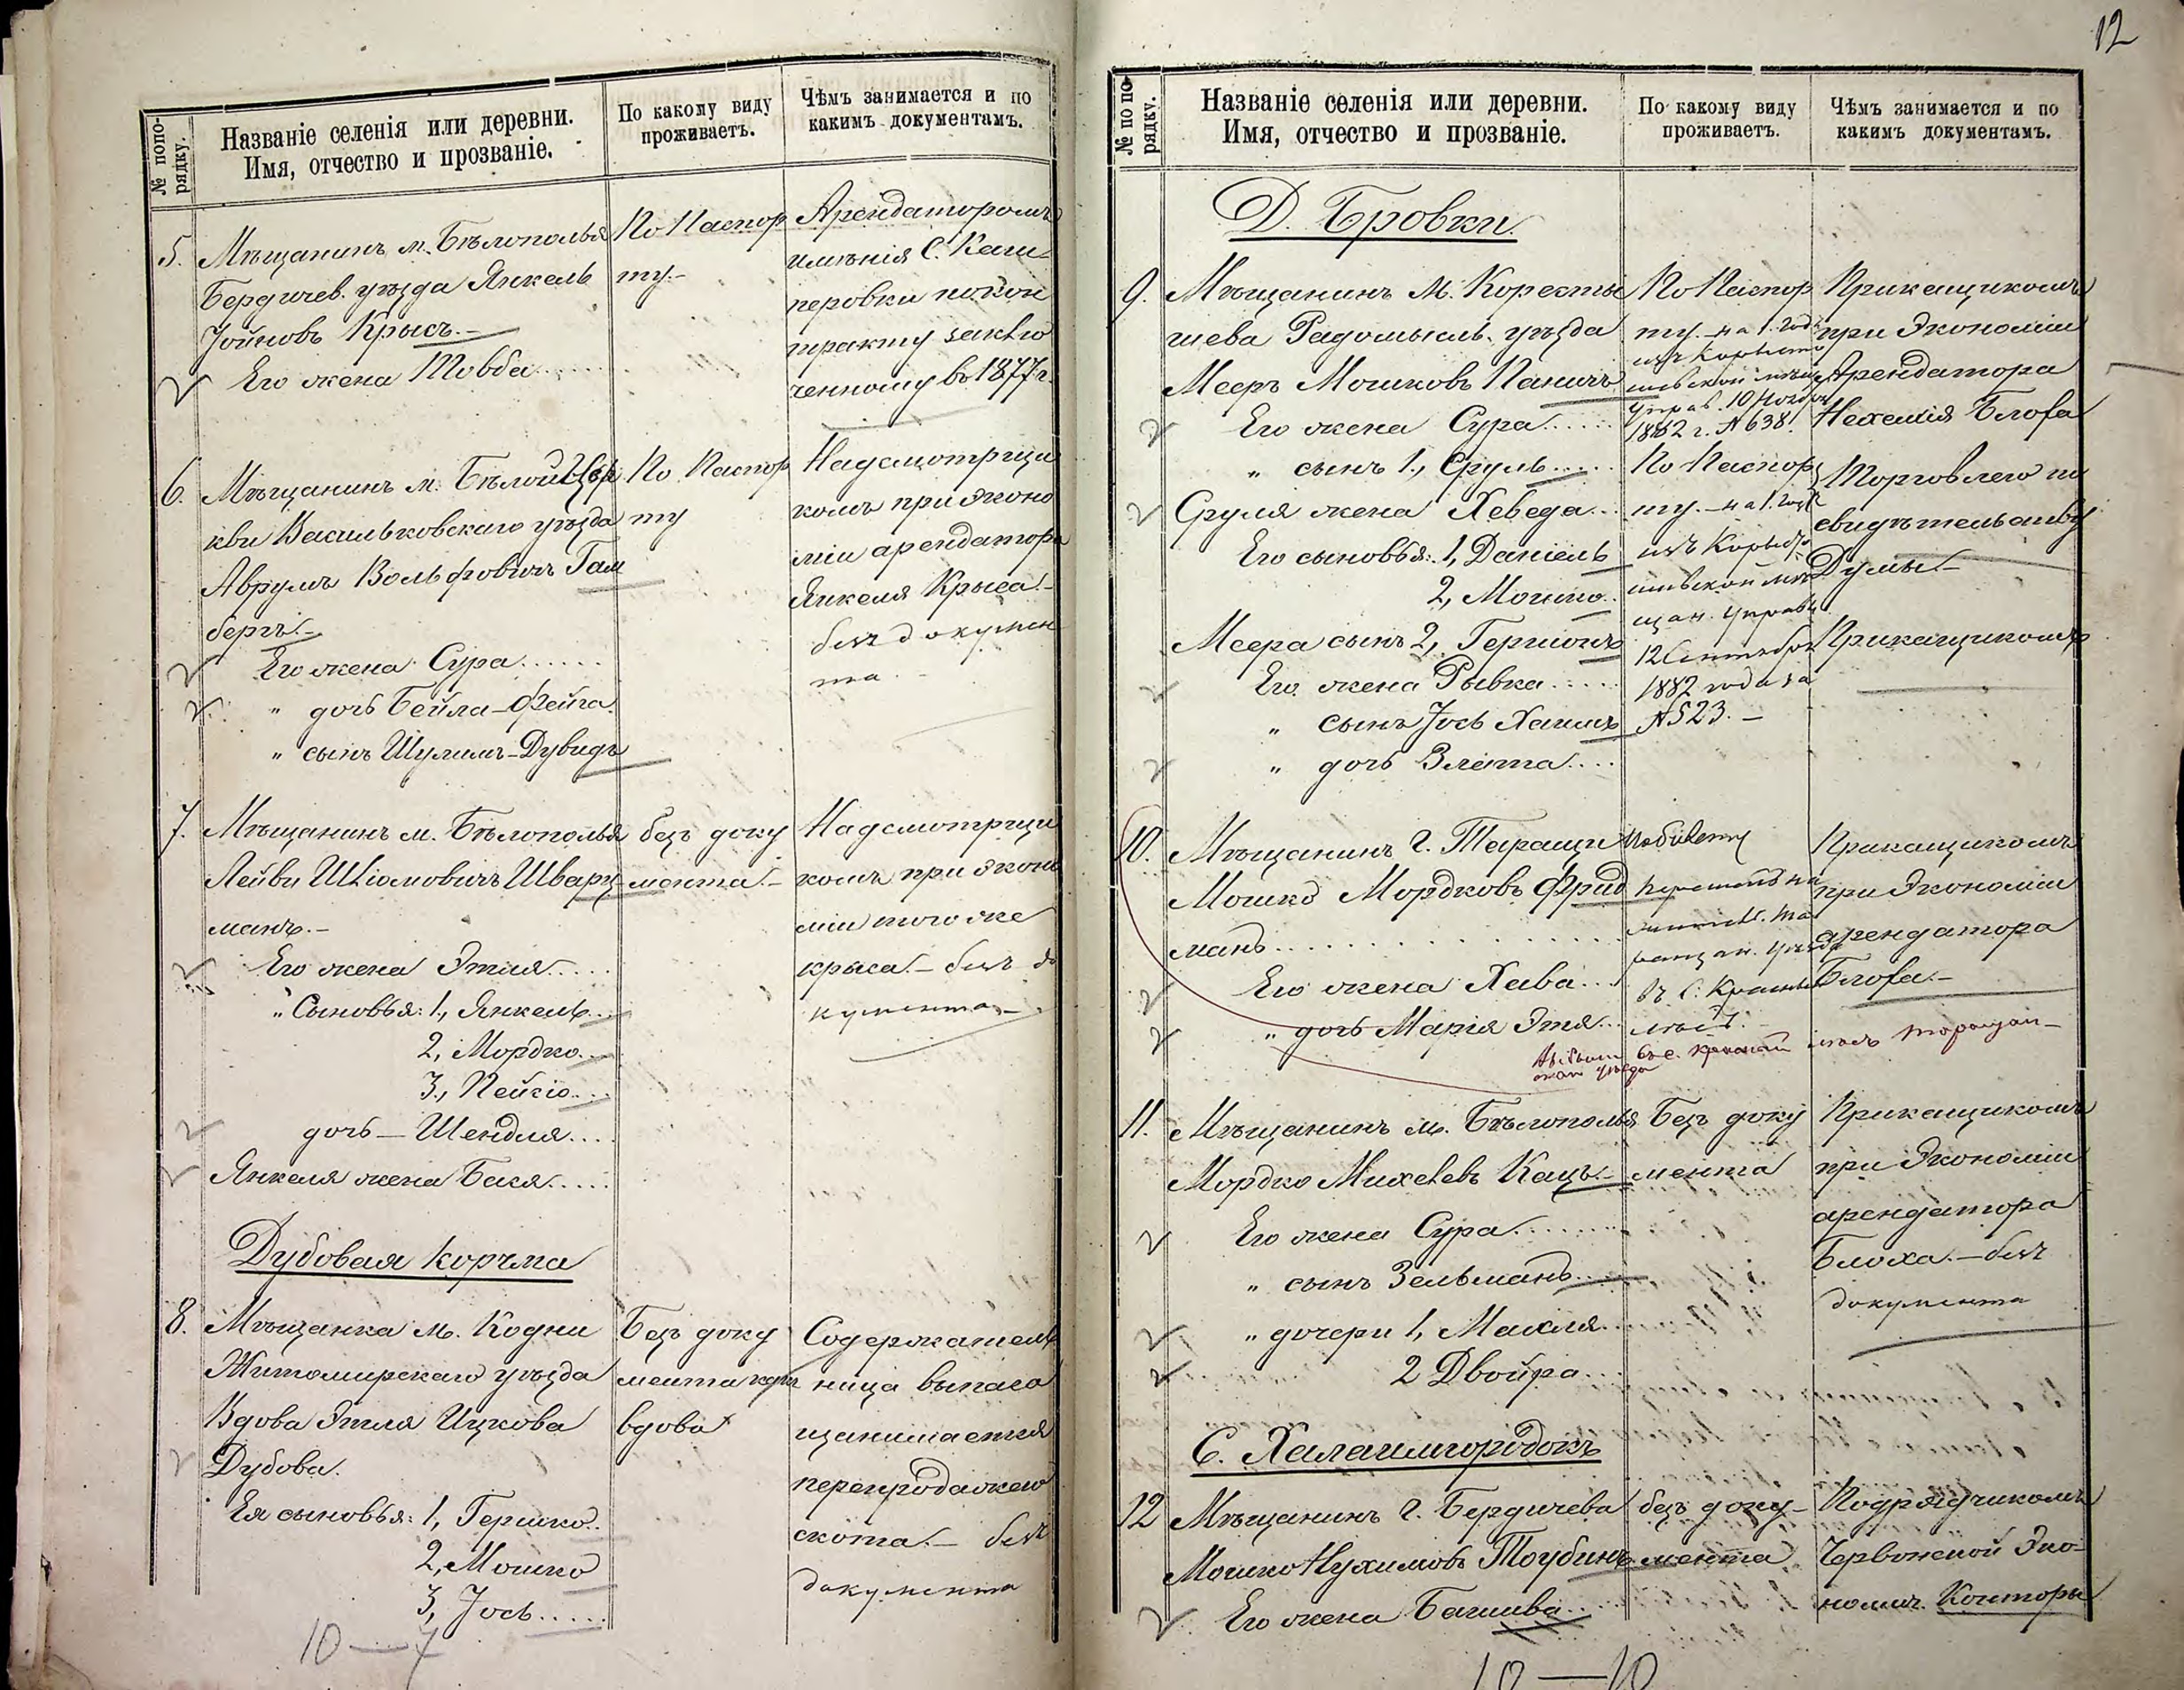 № попо-
рядку.
Названіе селенія или деревни.
Имя, отчество и прозваніе.
По какому виду
проживаетъ.
Чѣмъ занимается и по
какимъ документамъ.
5.
Мѣщанинъ м. Бѣлополья
Бердичев. уѣзда Янкель
Іойновъ Крысъ.-
Его жена Товба.....
По Паспор
ту.-
Арендаторомъ
имѣнія С. Каш-
перовки по кон
тракту заклю
ченному въ 1877 г.
6.
Мѣщанинъ м. Бѣлой Цер
кви Васильковскаго уѣзда
Аврумъ Вольфовичъ Гам
бергъ.-
Его жена Сура......
" дочь Бейла-Фейга.
" сынъ Шулимъ-Дувидъ
По Паспор
ту
Надсмотрщи
комъ при эконо
міи арендатора
Янкеля Крыса.-
безъ докумен
та.-
7.
Мѣщанинъ м. Бѣлополья
Лейви Шліомовичъ Шварц-
манъ.-
Его жена Этля.....
" Сыновья: 1, Янкель...
2, Мордко...
3, Пейсіо...
дочь - Шендля....
Янкеля жена Бася.....
безъ доку
мента.-
Надсмотрщи
комъ при эконо
міи того же
крыса.- безъ до
кумента.-
Дубовая корчма
8.
Мѣщанка м. Кодни
Житомирскаго уѣзда
Вдова Этля Ицкова
Дубова.
Ея сыновья: 1, Гершко..
2, Мошко
3, Іось.....
Безъ доку
мента какъ
вдова
Содержатель
ница выпаса
перепродажею
скота.- безъ
документа
10—7
12
№ по по-
рядку.
Названіе селенія или деревни.
Имя, отчество и прозваніе.
По какому виду
проживаетъ.
Чѣмъ занимается и по
какимъ документамъ.
Д. Бровки
9.
Мѣщанинъ м. Коросты
шева Радомысль. уѣзда
Мееръ Мошковъ Паничъ
Его жена Сура.....
" сынъ 1, Сруль.....
Сруля жена Хебеда...
Его сыновья: 1, Даніель
2, Мошко.
Меера сынъ 2, Гершонъ
Его жена Рывка.....
" сынъ Іось Хаимъ
" дочь Злета....
По Паспор
ту - на 1. годъ
управ. 10 Ноября
1882 г. № 638.
По Паспор
ту.- на 1. годъ
щан. управы
12 Сентября
1882 года за
№ 523.-
Прикащикомъ
при Экономіи
Арендатора
Нехемія Блоха
Торговлею по
свидѣтельству
Думы.-
Прикащикомъ
10.
Мѣщанинъ г. Таращи
Мошко Мордковъ Фрид
манъ
Его жена Хава...
" дочь Марія Этя...
По билету
Прикащикомъ
при Экономіи
арендатора
Блоха.-
11.
Мѣщанинъ м. Бѣлополья
Мордко Михелевъ Кацъ.-
Его жена Сура........
" сынъ Зельманъ....
" дочери 1, Малля..
2 Двойра...
Безъ доку
мента
Прикащикомъ
при Экономіи
арендатора
Блоха.- безъ
документа
С. Халаимгородокъ
12
Мѣщанинъ г. Бердичева
Мошко Нухимовъ Тоубинъ
Его жена Башива..
безъ доку-
мента
Подрядчикомъ
Червонской Эко-
номич. Конторы
10—10